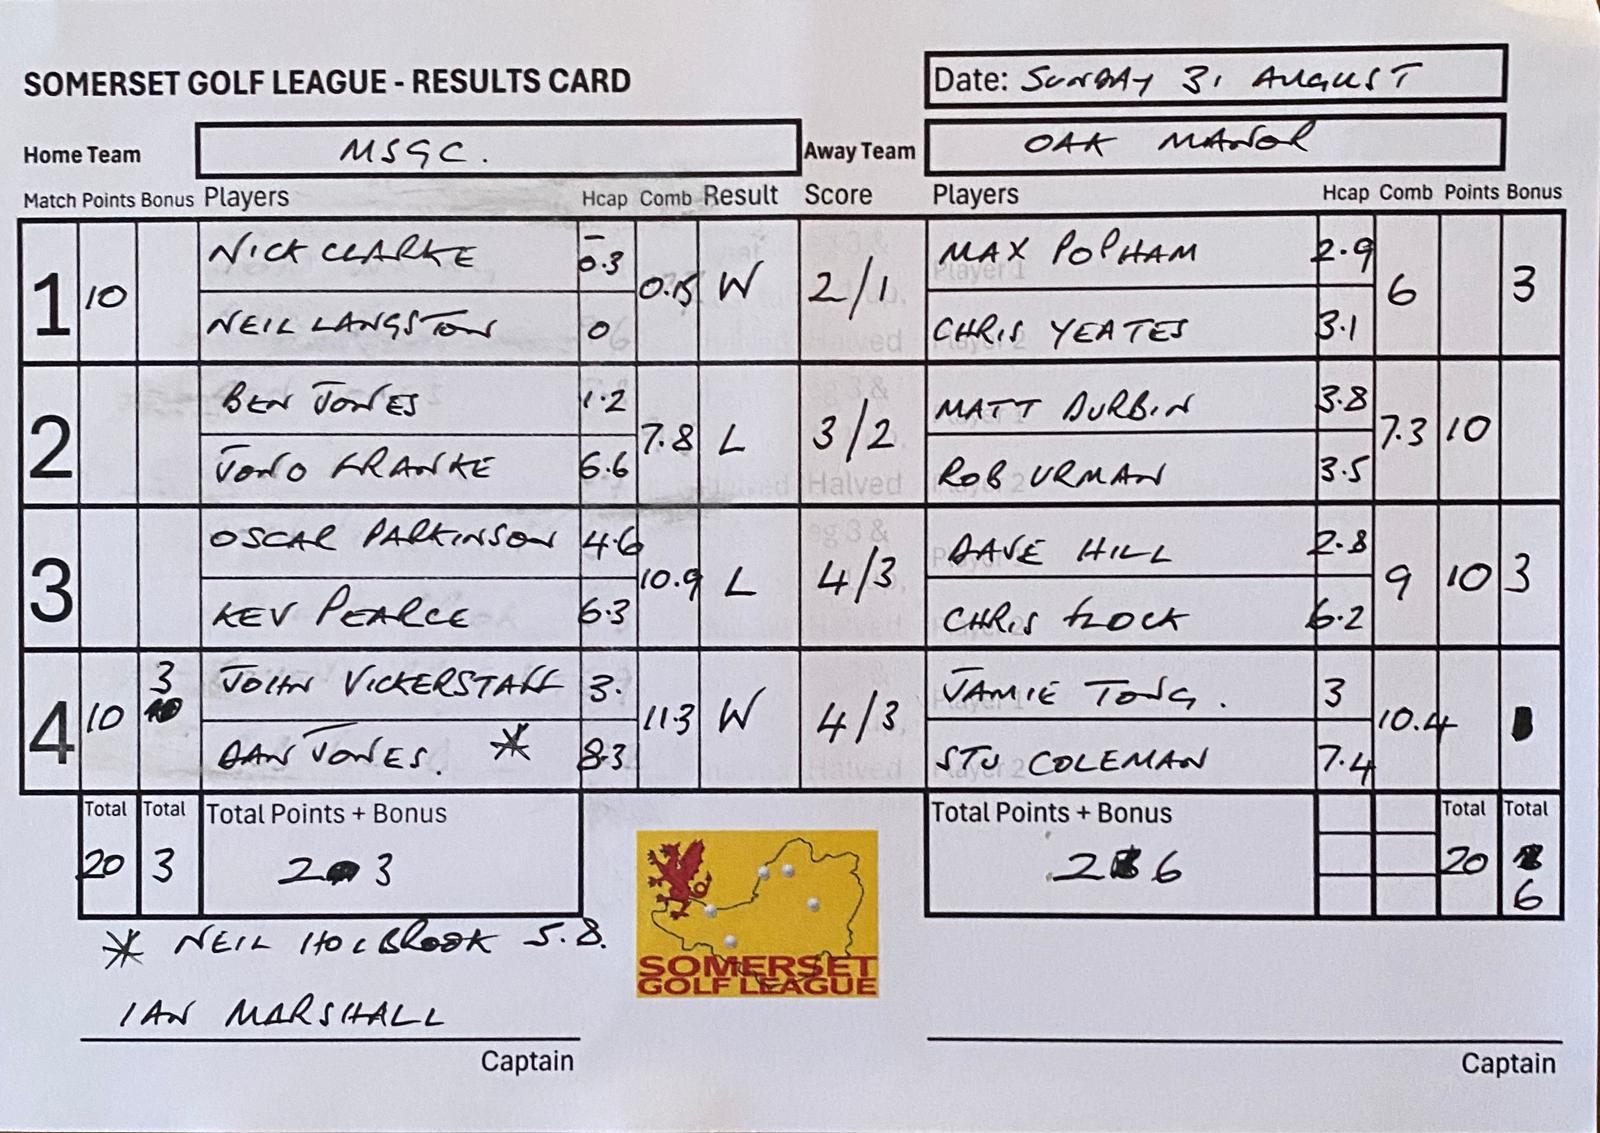 SOMERSET GOLF LEAGUE - RESULTS CARD
Date: SUNDAY 31 AUGUST
Home Team MSGC. Away Team OAK MANOR
Match Points Bonus Players Hcap Comb Result Score Players Hcap Comb Points Bonus
1 10 NICK CLARKE -0.3 0.15 W 2/1 MAX POPHAM 2.9 6 3
NEIL LANGSTON 0 CHRIS YEATES 3.1
2 BEN JONES 1.2 7.8 L 3/2 MATT DURBIN 3.8 7.3 10
JONO FRANKE 6.6 ROB URMAN 3.5
3 OSCAR PARKINSON 4.6 10.9 L 4/3 DAVE HILL 2.8 9 10 3
KEV PEARCE 6.3 CHRIS FLOCK 6.2
4 10 3 JOHN VICKERSTAFF 3. 11.3 W 4/3 JAMIE TONG. 3 10.4
DAN JONES. * 8.3 STU COLEMAN 7.4
Total Total Total Points + Bonus Total Points + Bonus Total Total
20 3 2 3 2 6 20 6
* NEIL HOLBROOK 5.8.
IAN MARSHALL
Captain Captain
SOMERSET
GOLF LEAGUE